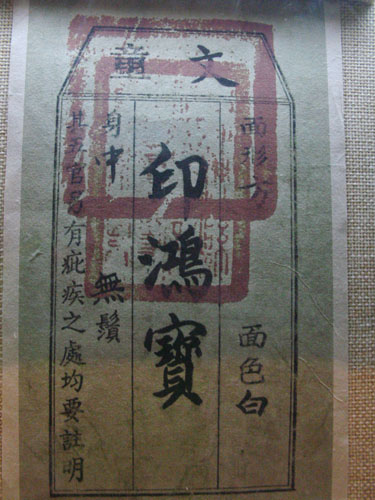 文童
面形方 面色白
印鴻寶
身中 無鬚
其五官 有疵疾之處均要註明